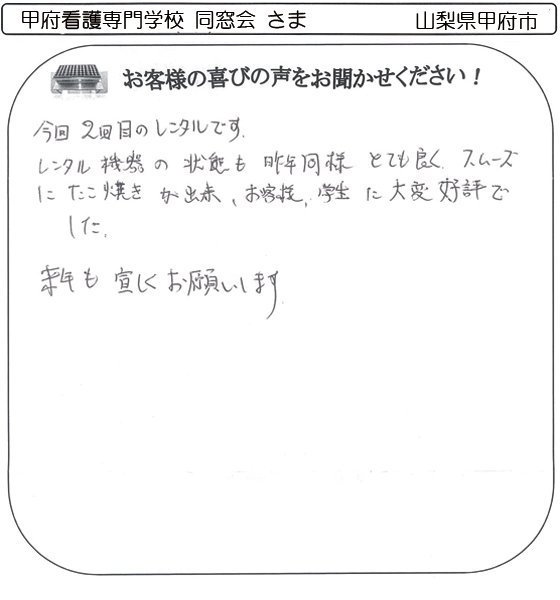 甲府看護専門学校 同窓会 さま 山梨県甲府市
お客様の喜びの声をお聞かせください！
今回2回目のレンタルです.
レンタル機器の状態も昨年同様とても良く、スムーズ
にたこ焼きが出来、お客様、学生に大変好評で
した。
来年も宜しくお願いします.